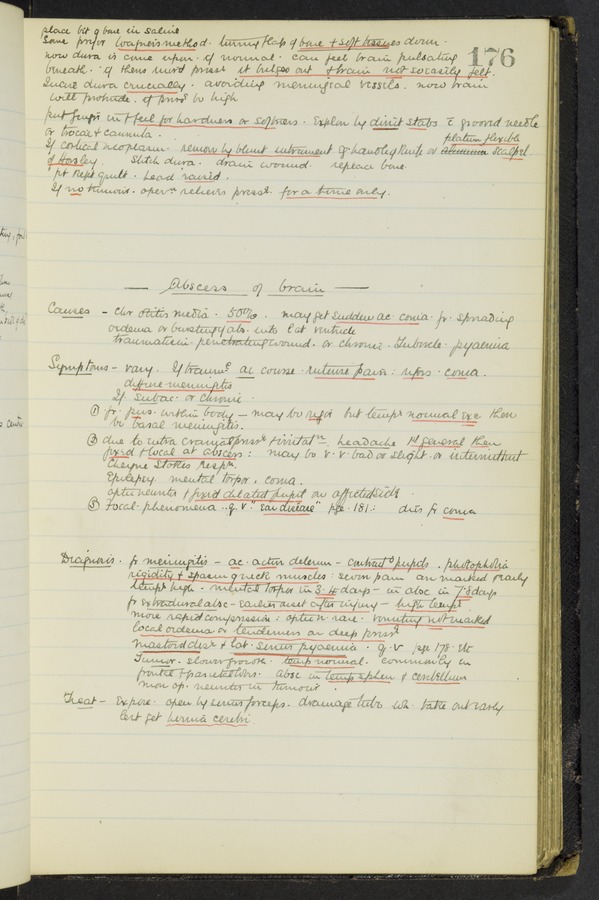 place bit of bone in saline
Some prefer Wagner's method. turning flap of bone & soft tissues down.
176
now dura is come upon. if normal. can feel brain pulsating
beneath. if there incrd press it bulges out & brain not so easily felt.
Incise dura crucially. avoiding meningeal vessels. now brain
will protrude if press be high
put finger in & feel for hardness or softness. Explore by direct stabs c grooved needle
or trocar & cannula.
platinum flexible
If cortical neoplasm. remove by blunt instrument of handled knife or aluminium scalpel
of Horsley. Stitch dura. drain wound. replace bone.
pt kept quiet. head raised.
If no tumour. opern relieves press. for a time only.
— Abscess of brain —
Causes - Chr otitis media. 50%. may get sudden ac coma fr. spreading
oedema or bursting of abs. into lat ventricle
traumatism penetrating wound. or chronic. Tubercle. pyaemia
Symptoms - vary. If traumc ac course. intense pain. rigors. coma.
diffuse meningitis
If subac. or chronic.
① fr. pus. within body - may be rigor but tempr normal exc then
be basal meningitis.
② due to intra cranial press & irritatn. headache 1st general then
fixed & local at abscess: may be v. v. bad or slight. or intermittent
Cheyne Stokes respn.
Epilepsy. mental torpor. coma.
optic neuritis & fixed dilated pupil on affected side
③ Focal phenomena. q.v. "Ear disease" pge 181: dies fr coma
Diagnosis. fr meningitis - ac. active delerium - contractd pupils. photophobia
rigidity & spasm of neck muscles: severe pain are marked & early
tempr high. mental torpor in 3.4 days - in absc in 7.8 days
fr extradural absc - earlier onset after injury - high tempr
more rapid compression: optic n rare. vomiting not marked
local oedema or tenderness on deep press
mastoid disr & lat. sinus pyaemia. q.v pge 178. etc
Tumor. slower growth. temp normal. commonly in
frontal & parietal lobes. absc in temp sphen & cerebellum
more op. neuritis in tumour.
Treat - Explore. open by sinus forceps. drainage tube wh. take out early
lest get hernia cerebri.